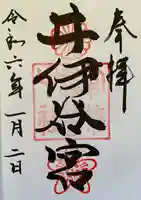 奉拝
井伊谷宮
令和六年一月二日